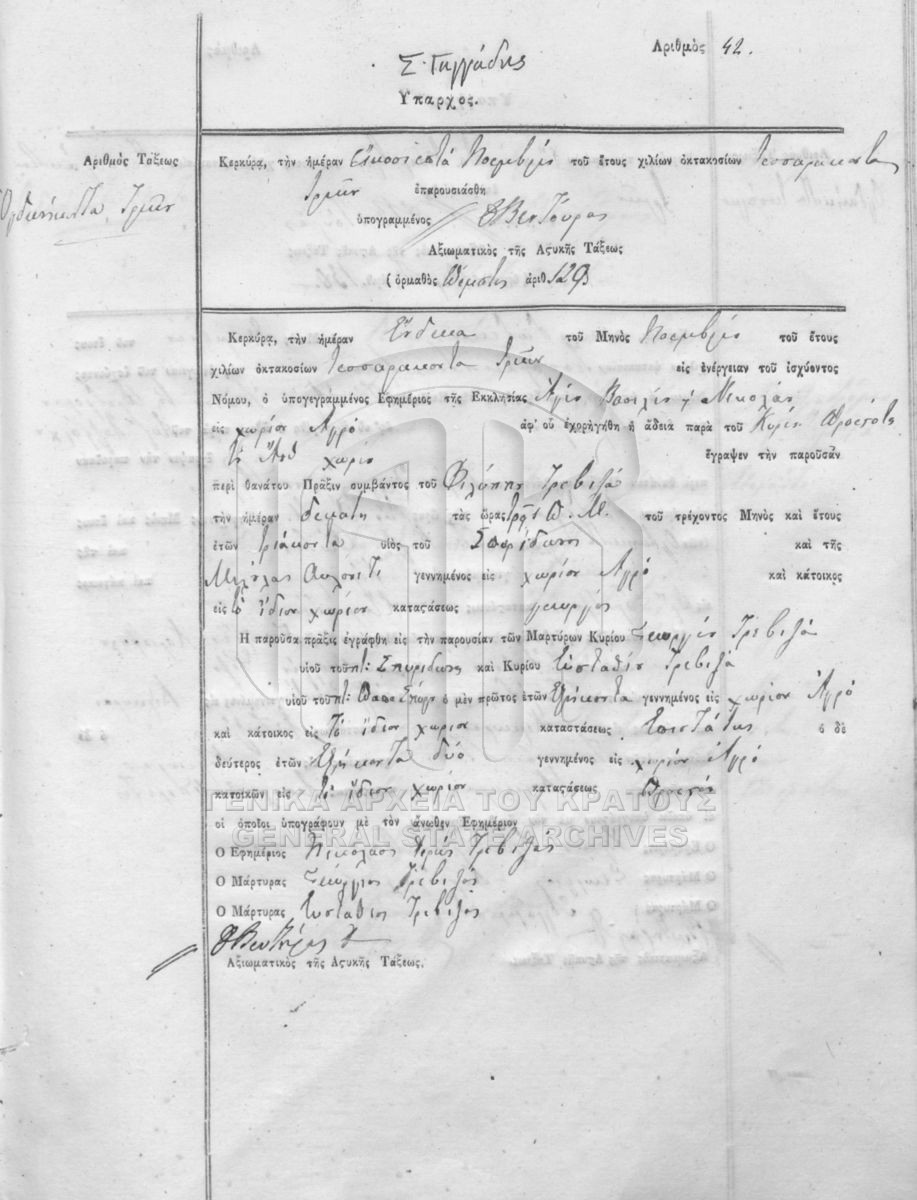 Ἀριθμὸς 42.
Σ. Γιγγάδης
Ὕπαρχος.
Ἀριθμὸς Τάξεως
Ὀγδοήκοντα Τρεῖς
Κερκύρᾳ, τὴν ἡμέραν Εἴκοσι ἑπτά Νοεμβρίου τοῦ ἔτους χιλίων ὀκτακοσίων τεσσαράκοντα
Τριῶν ἐπαρουσιάσθη
ὑπογραμμένος
Ἀξιωματικὸς τῆς Ἀςυκῆς Τάξεως
(ὁρμαθὸς ἀριθ 129)
Κερκύρᾳ, τὴν ἡμέραν Ἕνδεκα τοῦ Μηνὸς Νοεμβρίου τοῦ ἔτους
χιλίων ὀκτακοσίων Τεσσαράκοντα Τριῶν εἰς ἐνέργειαν τοῦ ἰσχύοντος
Νόμου, ὁ ὑπογεγραμμένος Ἐφημέριος τῆς Ἐκκλησίας Ἁγίου Βασιλείου Νικολάου
εἰς χωρίον Ἀγρό ἀφ' οὗ ἐχορηγήθη ἡ ἄδεια παρὰ τοῦ Κυρίου Προεστός
χωρίου ἔγραψεν τὴν παροῦσαν
περὶ θανάτου Πρᾶξιν συμβάντος τοῦ Φιλίππου Τρεβιζά
τὴν ἡμέραν δεκάτη τὰς ὥρας Π. Μ. τοῦ τρέχοντος Μηνὸς καὶ ἔτους
ἐτῶν τριάκοντα υἱὸς τοῦ Σπυρίδωνος καὶ τῆς
γεννημένος εἰς χωρίον Ἀγρό καὶ κάτοικος
εἰς τὸ ἴδιον χωρίον καταςάσεως γεωργός
Ἡ παροῦσα πρᾶξις ἐγράφθη εἰς τὴν παρουσίαν τῶν Μαρτύρων Κυρίου Γεωργίου Τρεβιζά
υἱοῦ τοῦ π: Σπυρίδωνος καὶ Κυρίου Εὐσταθίου Τρεβιζά
υἱοῦ τοῦ π: Παπα Σπύρου ὁ μὲν πρῶτος ἐτῶν Ἑξήκοντα γεννημένος εἰς χωρίον Ἀγρό
καὶ κάτοικος εἰς Τὸ ἴδιον χωρίον καταστάσεως Ἐπιστάτης ὁ δὲ
δεύτερος ἐτῶν Ἑξήκοντα δύο γεννημένος εἰς χωρίον Ἀγρό
κατοικῶν εἰς τὸ ἴδιον χωρίον καταςάσεως Προεστός
οἱ ὁποῖοι ὑπογράφουν μὲ τὸν ἄνωθεν Ἐφημέριον
Ὁ Ἐφημέριος Νικόλαος Ἱερεύς Τρεβιζάς
Ὁ Μάρτυρας Γεώργιος Τρεβιζάς
Ὁ Μάρτυρας Ευστάθιος Τρεβιζάς
Ἀξιωματικὸς τῆς Ἀςυκῆς Τάξεως.
ΓΕΝΙΚΑ ΑΡΧΕΙΑ ΤΟΥ ΚΡΑΤΟΥΣ
GENERAL STATE ARCHIVES